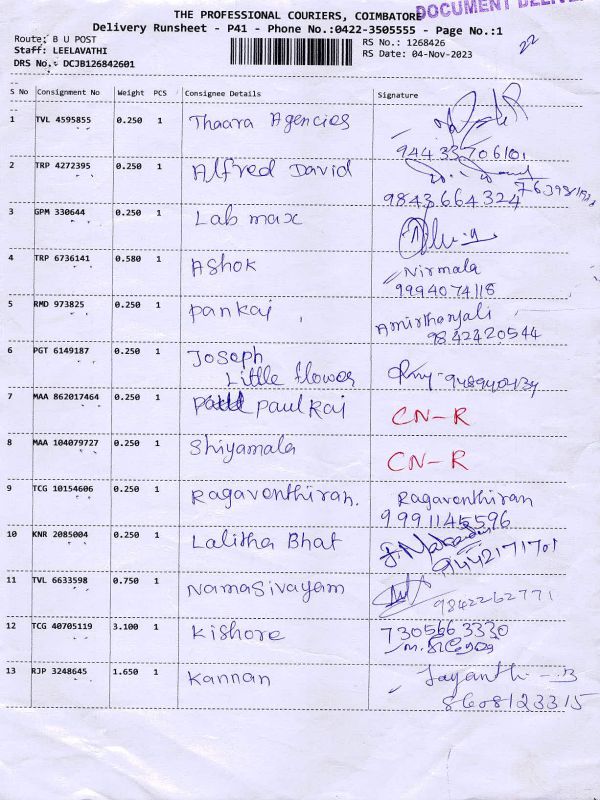 THE PROFESSIONAL COURIERS, COIMBATORE
DOCUMENT
Delivery Runsheet - P41 - Phone No.:0422-3505555 - Page No.:1
Route: B U POST
RS No.: 1268426
Staff: LEELAVATHI
RS Date: 04-Nov-2023
22
DRS No.: DCJB126842601
S No Consignment No Weight PCS Consignee Details Signature
1 TVL 4595855 0.250 1 Thaara Agencies
94433706101
2 TRP 4272395 0.250 1 Alfred David
9843664324
3 GPM 330644 0.250 1 Lab max
4 TRP 6736141 0.580 1 Ashok Nirmala
9994074118
5 RMD 973825 0.250 1 pankaj Amirthanjali
9842420544
6 PGT 6149187 0.250 1 Joseph
Little flower
7 MAA 862017464 0.250 1 Paulraj CN-R
8 MAA 104079727 0.250 1 Shiyamala CN-R
9 TCG 10154606 0.250 1 Ragaventhiran. Ragaventhiran
9991145596
10 KNR 2085004 0.250 1 Lalitha Bhat
9442171701
11 TVL 6633598 0.750 1 Namasivayam
9842262771
12 TCG 40705119 3.100 1 Kishore 7305663330
13 RJP 3248645 1.650 1 Kannan Jayanthi
8608123315